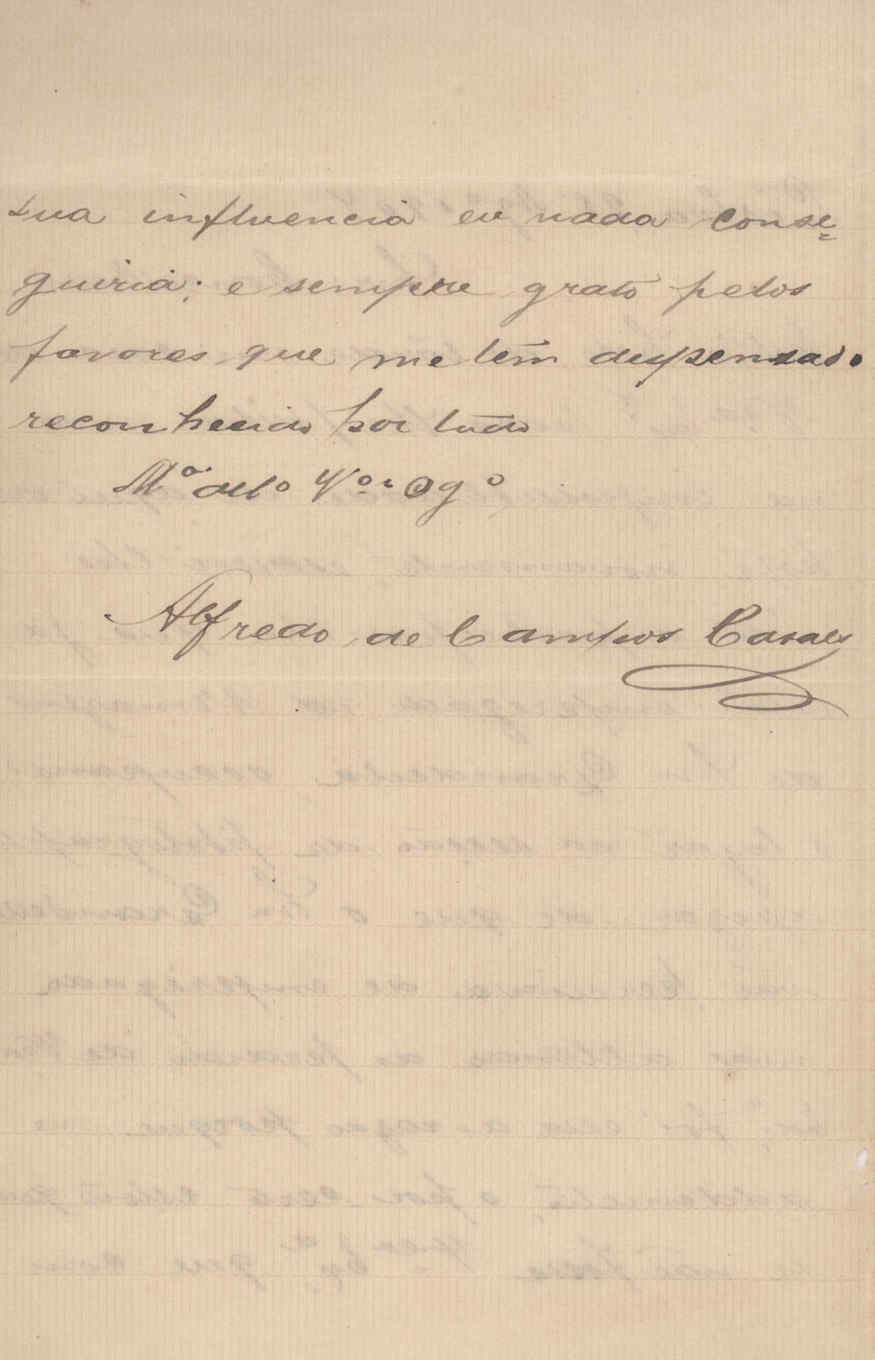 sua influencia eu nada conse=
guiria; e sempre grato pelos
favores que me têm dispensado
reconhecido por tudo
M.º att.º V.ºr Obg.º
Alfredo de Campos Casaes